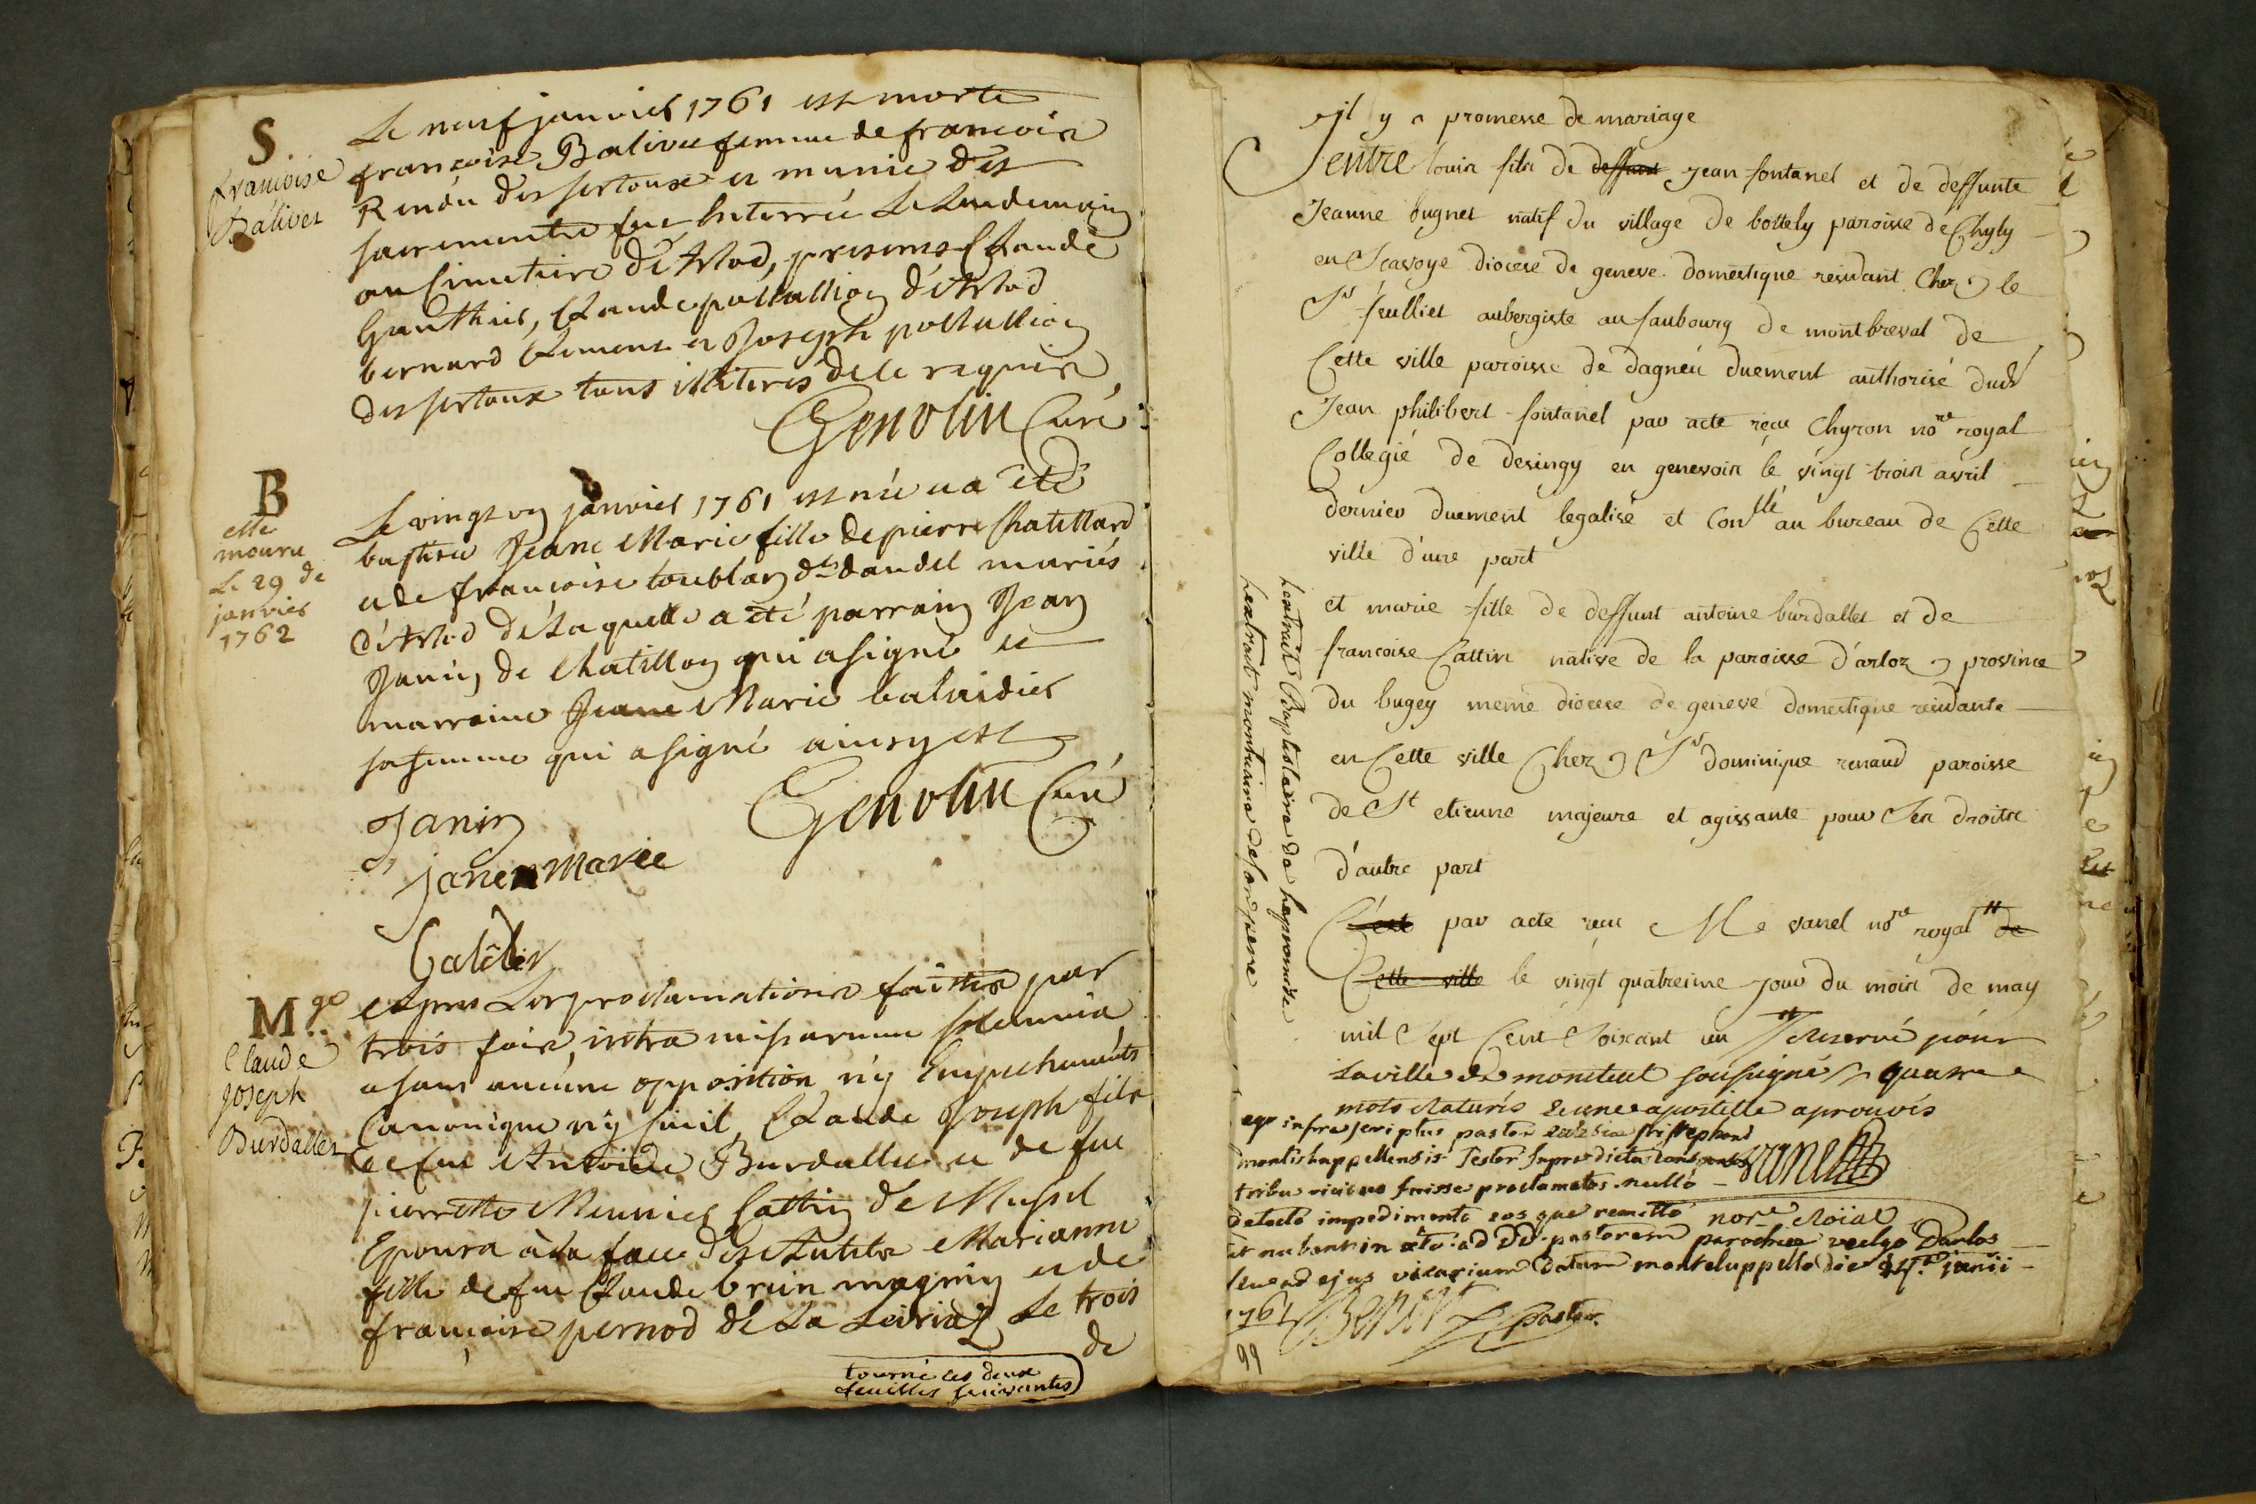 S
francoise
Balivet
Le neuf janvier 1761 est morte
francoise Balivet femme de francois
Rendu des sertoux et munie des
sacrements fut Enterrée Le Lendemain
au Cimetiere d'Arlod, presens Claude
Gauthier, Claude pollallion d'Arlod
bernard Clement et Joseph pollallion
des sertoux tous illiteres de ce requis
Genolin Curé
B
elle
mouru
Le 29 de
janvier
1762
Le vingt un janvier 1761 est née et a été
baptisée Jeane Marie fille de pierre Chatillard
et de francoise toublan dt daudel mariés
d'Arlod de Laquelle a été parrain Jean
Janin de Chatillon qui a signé et
marraine Jeane Marie balaidier
sa femme qui a signé ainsy est
Janin
Genolin Curé
Jane Marie
Galidier
M.ge
Claude
Joseph
Burdallet
Apres Les proclamations faittes par
trois fois, intra missarum solemnia
et sans aucune opposition n'y Empechements
Canonique n'y Civil, Claude Joseph fils
de feu Antoine Burdallet et de feu
pierrette Meunier Cattin de Mussel
Epousa à la face des Autels Marianne
fille de feu Claude brun magnin et de
francoise pernod de La Leiriaz Le trois
de
tourné les deux
feuilles suivantes
Il y a promesse de mariage
entre louis fils de deffunt Jean fontanel et de deffunte
Jeanne bugnet natif du village de bottely paroisse de Chyly
en Scavoye diocese de geneve domestique residant Chez le
Sr feulliet aubergiste au faubourg de montbreval de
Cette ville paroisse de dagneu duement authorisé dud
Jean philibert fontanel par acte reçu Chyron nore royal
Collegié de desingy en genevois le vingt trois avril
dernier duement legalisé et Conllé au bureau de Cette
ville d'une part
et marie fille de deffunt antoine burdallet et de
francoise Cattin native de la paroisse d'arloz province
du bugey meme diocese de geneve domestique residante
en Cette ville Chez Sr dominique renaud paroisse
de St etienne majeure et agissante pour Ses droits
d'autre part
C'est par acte reçu Me vanel nore royal de
Cette ville le vingt quatreime jour du mois de may
mil Sept Cent Soixant un Reservé pour
La ville de montluel soussigné quatre
mots raturés et une apostille aprouvés
vanel
nore Roïal
Lextrait Baptistaire de la promise
Lextrait mortuaire de son pere
ego infra scriptus pastor ecclesiae sti stephani
montishuppellensis testor supradictos
tribu vicibus fuisse proclamatos nullo
detecto impedimento eos que remitto
ut nubent in ad DD. pastorem parochiae vulgo Darlos
seu ad ejus vicarium datum monteluppelo die junii
1761
pastor